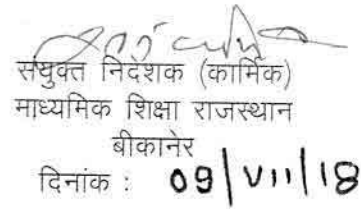 संयुक्त निदेशक (कार्मिक)
माध्यमिक शिक्षा राजस्थान
बीकानेर
दिनांक : 09/VII/18